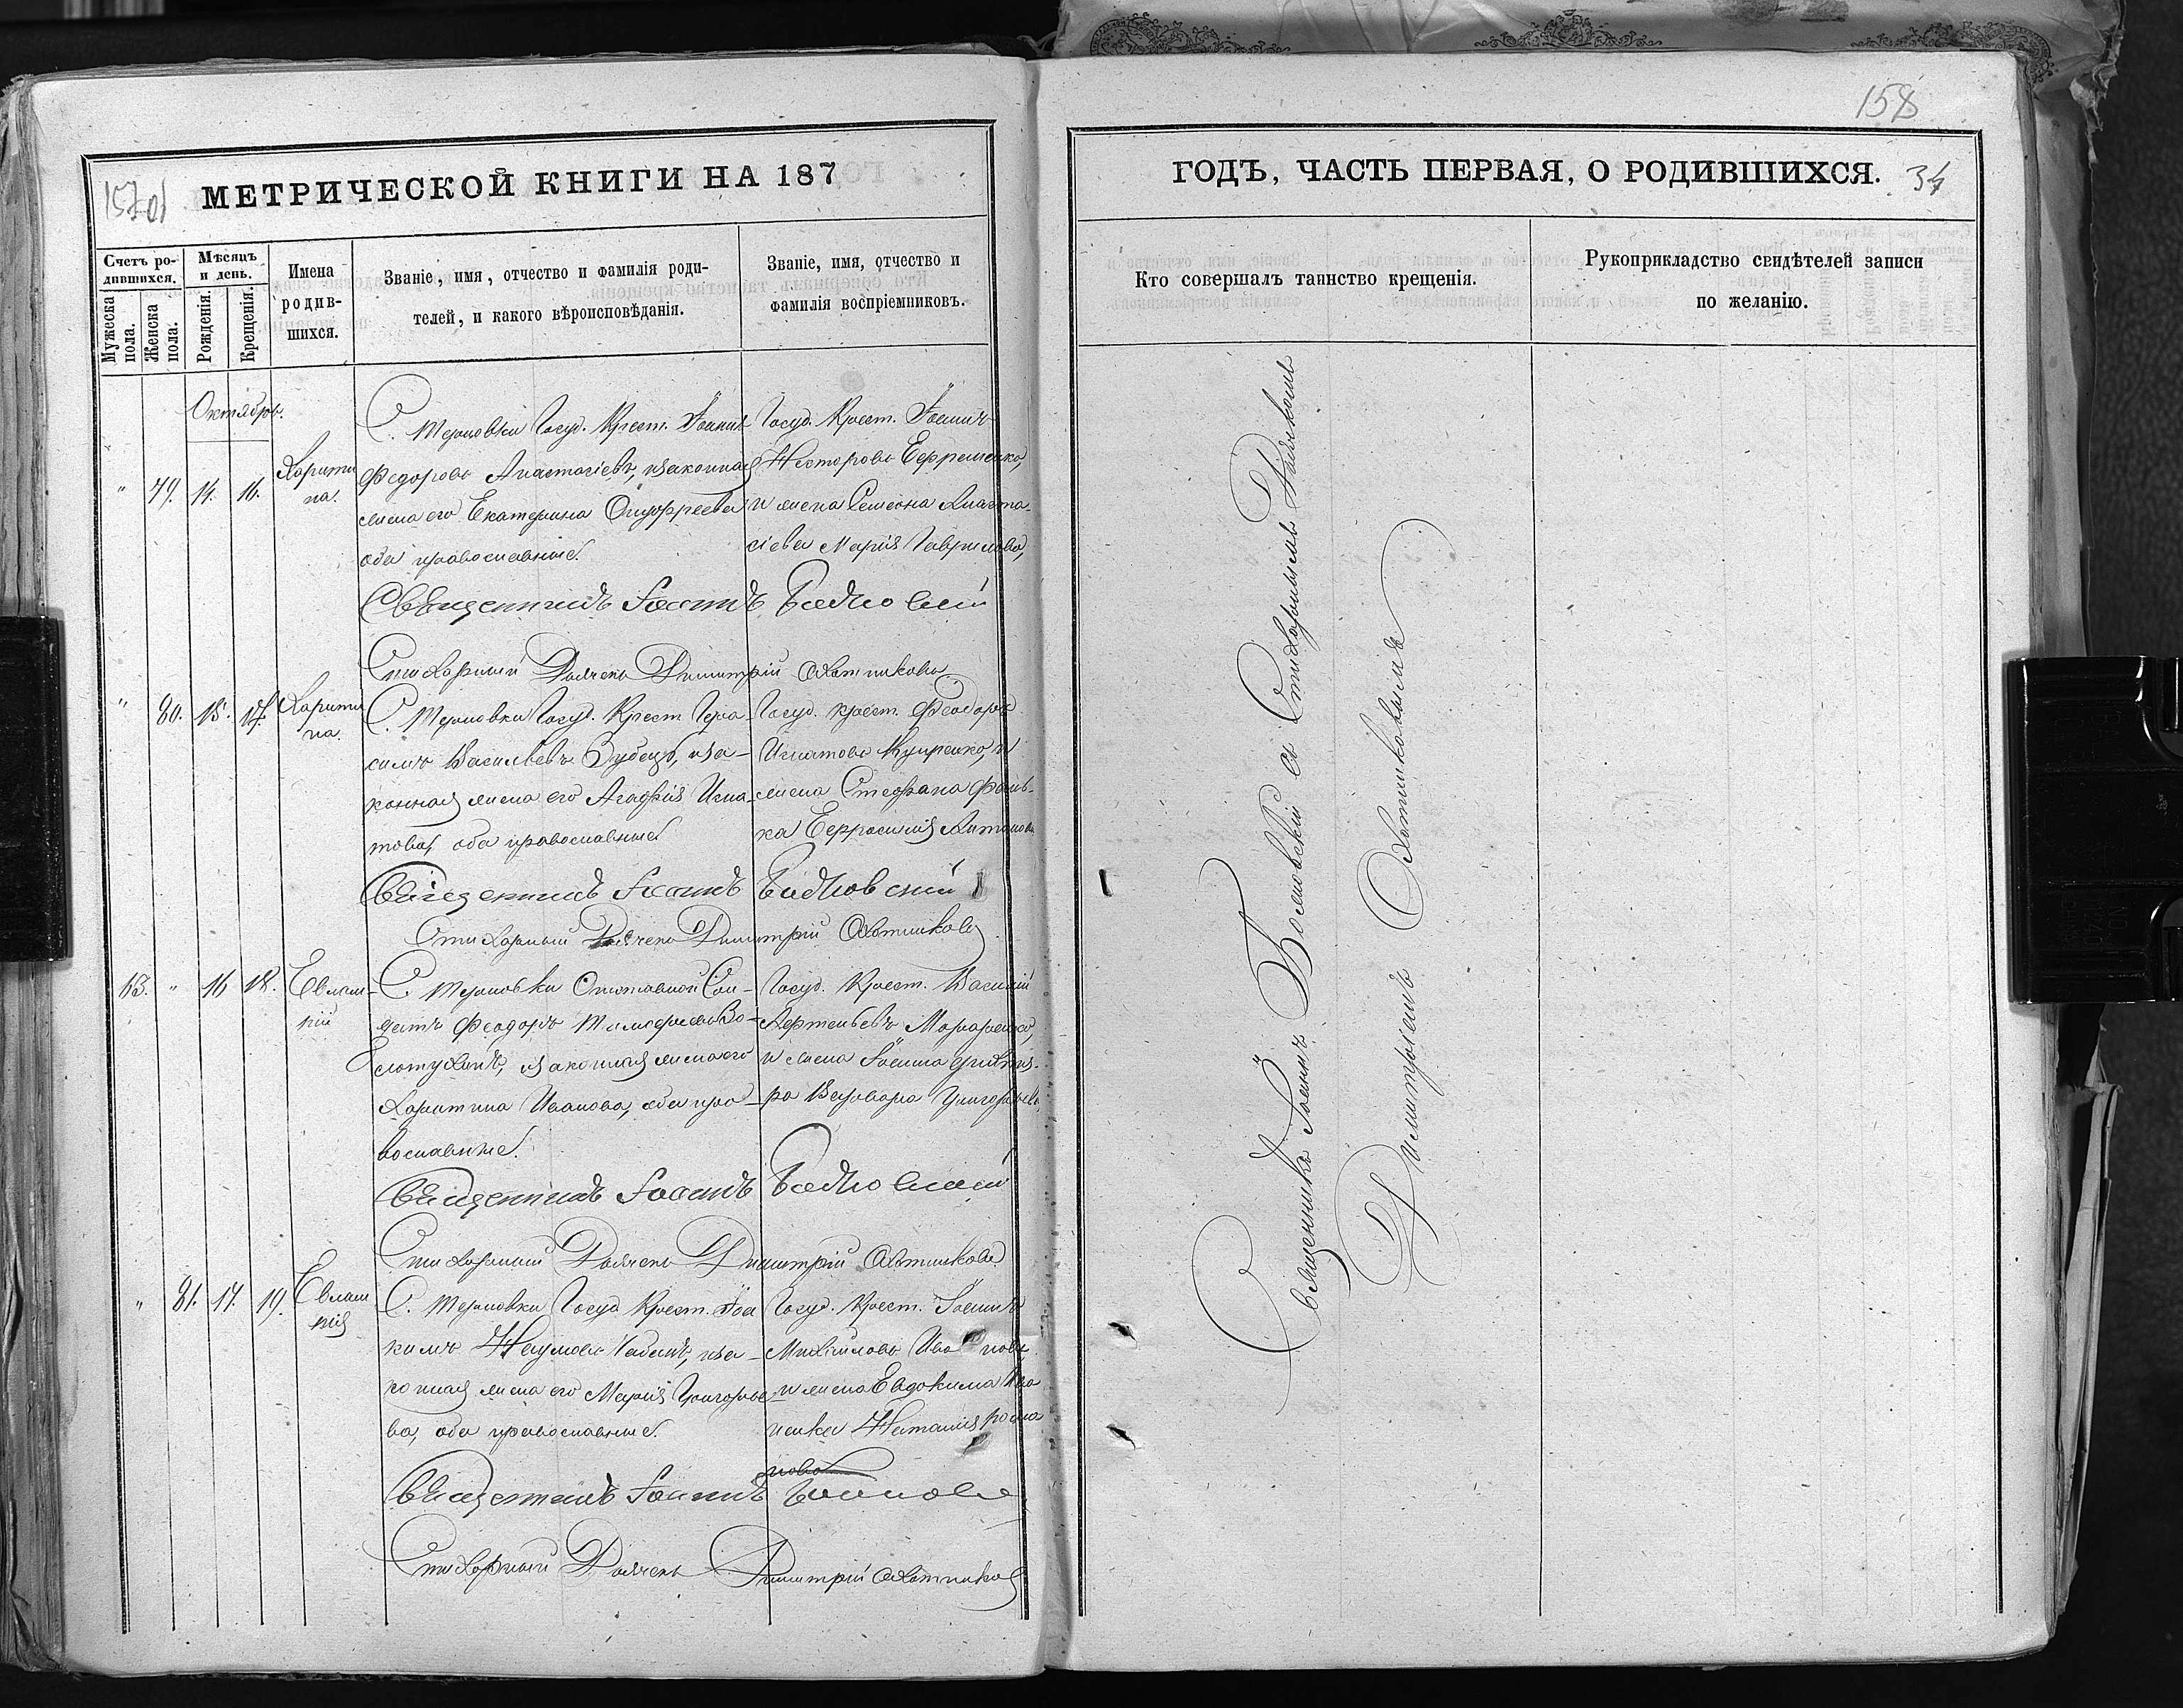 158
157об
МЕТРИЧЕСКОЙ КНИГИ НА 187
Счетъ ро-
дившихся.
Мужеска пола.
Женска пола.
Мѣсяцъ
и день.
Рожденія.
Крещенія.
Имена
родив-
шихся.
Званіе, имя, отчество и фамилія роди-
телей, и какого вѣроисповѣданія.
Званіе, имя, отчество и
фамилія воспріемниковъ.
Октябрь.
" 79. 16. Харити
на.
С. Терновки Госуд. Крест. Іоаннъ
Федоровъ Анастасіевъ, и законная
жена его Екатерина Онуфріева
оба православные.
Госуд. Крест. Іоаннъ
Несторовъ Ефременко,
и жена Семиона Анаста-
сіева Марія Гаврилова,
Священникъ Іоаннъ
Стихарный Дьячекъ Димитрій Охотниковъ
" 80. 15. 17. Харити
на.
С. Терновки Госуд. Крест. Гера-
симъ Васильевъ Зубецъ, и за-
конная жена его Агафія Игна-
това, оба православные
Госуд. крест. Феодоръ
Игнатовъ Купренко, и
жена Стефана Фаль-
ка Евфросинія Антонова
Священникъ Іоаннъ
Стихарный Дьячекъ Димитрій Охотниковъ
63. " 16 18. Евлам-
пій
С. Терновки Отставной Сол-
датъ Феодоръ Тимофеевъ Во-
лотухинъ, и законная жена его
Харитина Иванова, оба пра-
вославные.
Госуд. Крест. Василій
Артемьевъ
и жена Іоанна
ра Варвара Григорьева,
Священникъ Іоаннъ
Стихарный Дьячекъ Димитрій Охотниковъ
" 81. 17. 19. Евлам
пія
С. Терновки Госуд Крест. Іоа
кимъ Наумовъ Чабанъ, и за-
конная жена его Марія Григорье-
ва, оба православные.
Госуд. Крест. Іоаннъ
Михайловъ Ива новъ
и жена Евдокима Ива
ненка Наталія Рома
нова
Священникъ Іоаннъ
Стихарный Дьячекъ Димитрій Охотниковъ
ГОДЪ, ЧАСТЬ ПЕРВАЯ, О РОДИВШИХСЯ.
34
Кто совершалъ таинство крещенія.
Рукоприкладство свидѣтелей записи
по желанію.
Священникъ Іоаннъ со Стихарнымъ Дьячкомъ
Димитріемъ Охотниковымъ